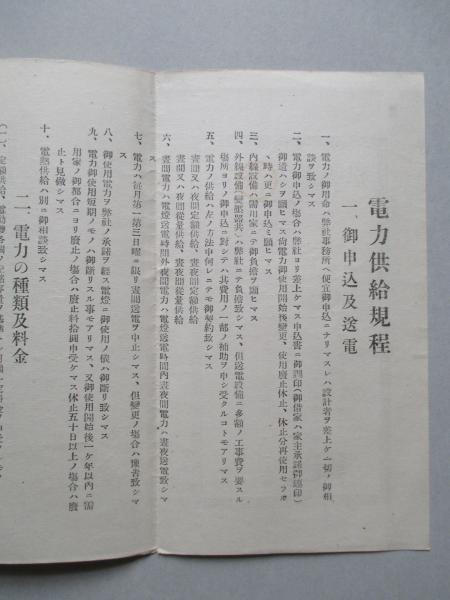 電力供給規程
一、御申込及送電
一、電力ノ御用命ハ弊社事務所ヘ便宜御申込ニナリマスレバ設計者ヲ差上ケ一切ノ御相
談ヲ致シマス
二、電力御申込ノ場合ハ弊社ヨリ差上ケマス申込書ニ御調印(御借家ハ家主承諾御連印)
御遣ハシヲ願ヒマス尚電力御使用開始後變更、使用廢止休止、休止分再使用セラルヽ
時ハ更ニ御申込ヲ願ヒマス
三、内線設備ハ需用家ニテ御負擔ヲ願ヒマス
四、外線設備(變壓器共)ハ弊社ニテ負擔致シマス、但送電設備ニ多額ノ工事費ヲ要スル
場所ヨリノ御申込ニ對シテハ其費用ノ一部ノ補助ヲ申シ受クルコトモアリマス
五、電力ノ供給ハ左ノ方法中何レニテモ御契約致シマス
晝間又ハ夜間定額供給、晝夜間定額供給
晝間又ハ夜間從量供給、晝夜間從量供給
六、晝間電力ハ電燈送電時間外夜間電力ハ電燈送電時間内晝夜間電力ハ晝夜送電致シマ
ス
七、電力ハ毎月第一第三日曜ニ限リ晝間送電ヲ中止シマス、但變更ノ場合ハ豫告致シマ
ス
八、御使用電力ヲ弊社ノ承諾ヲ經ス電燈ニ御使用ノ儀ハ御斷リ致シマス
九、電力御使用短期ノモノハ御斷リスル事モアリマス、又御使用開始後一ケ年以内ニ需
用家ノ御都合ニヨリ廢止ノ場合ハ廢止料拾圓申受ケマス休止五十日以上ノ場合ハ廢
止ト見做シマス
十、電熱供給ハ別ニ御相談致シマス
二、電力の種類及料金